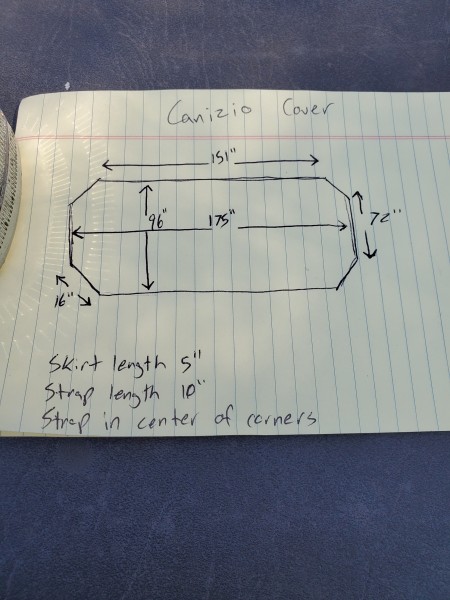 Canizio Cover
151"
96"
175"
72"
16"
Skirt length 5"
Strap length 10"
Strap in center of corners